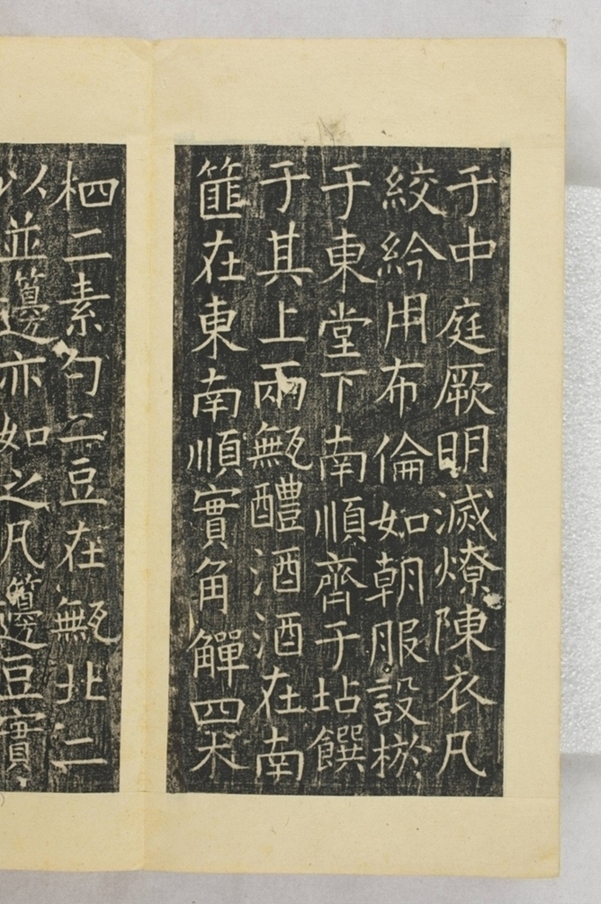 于中庭厥明滅燎陳衣凡
絞紟用布倫如朝服設棜
于東堂下南順齊于坫饌
于其上兩甒醴酒酒在南
篚在東南順實角觶四木
柶二素勺二豆在甒北二
以並籩亦如之凡籩豆實